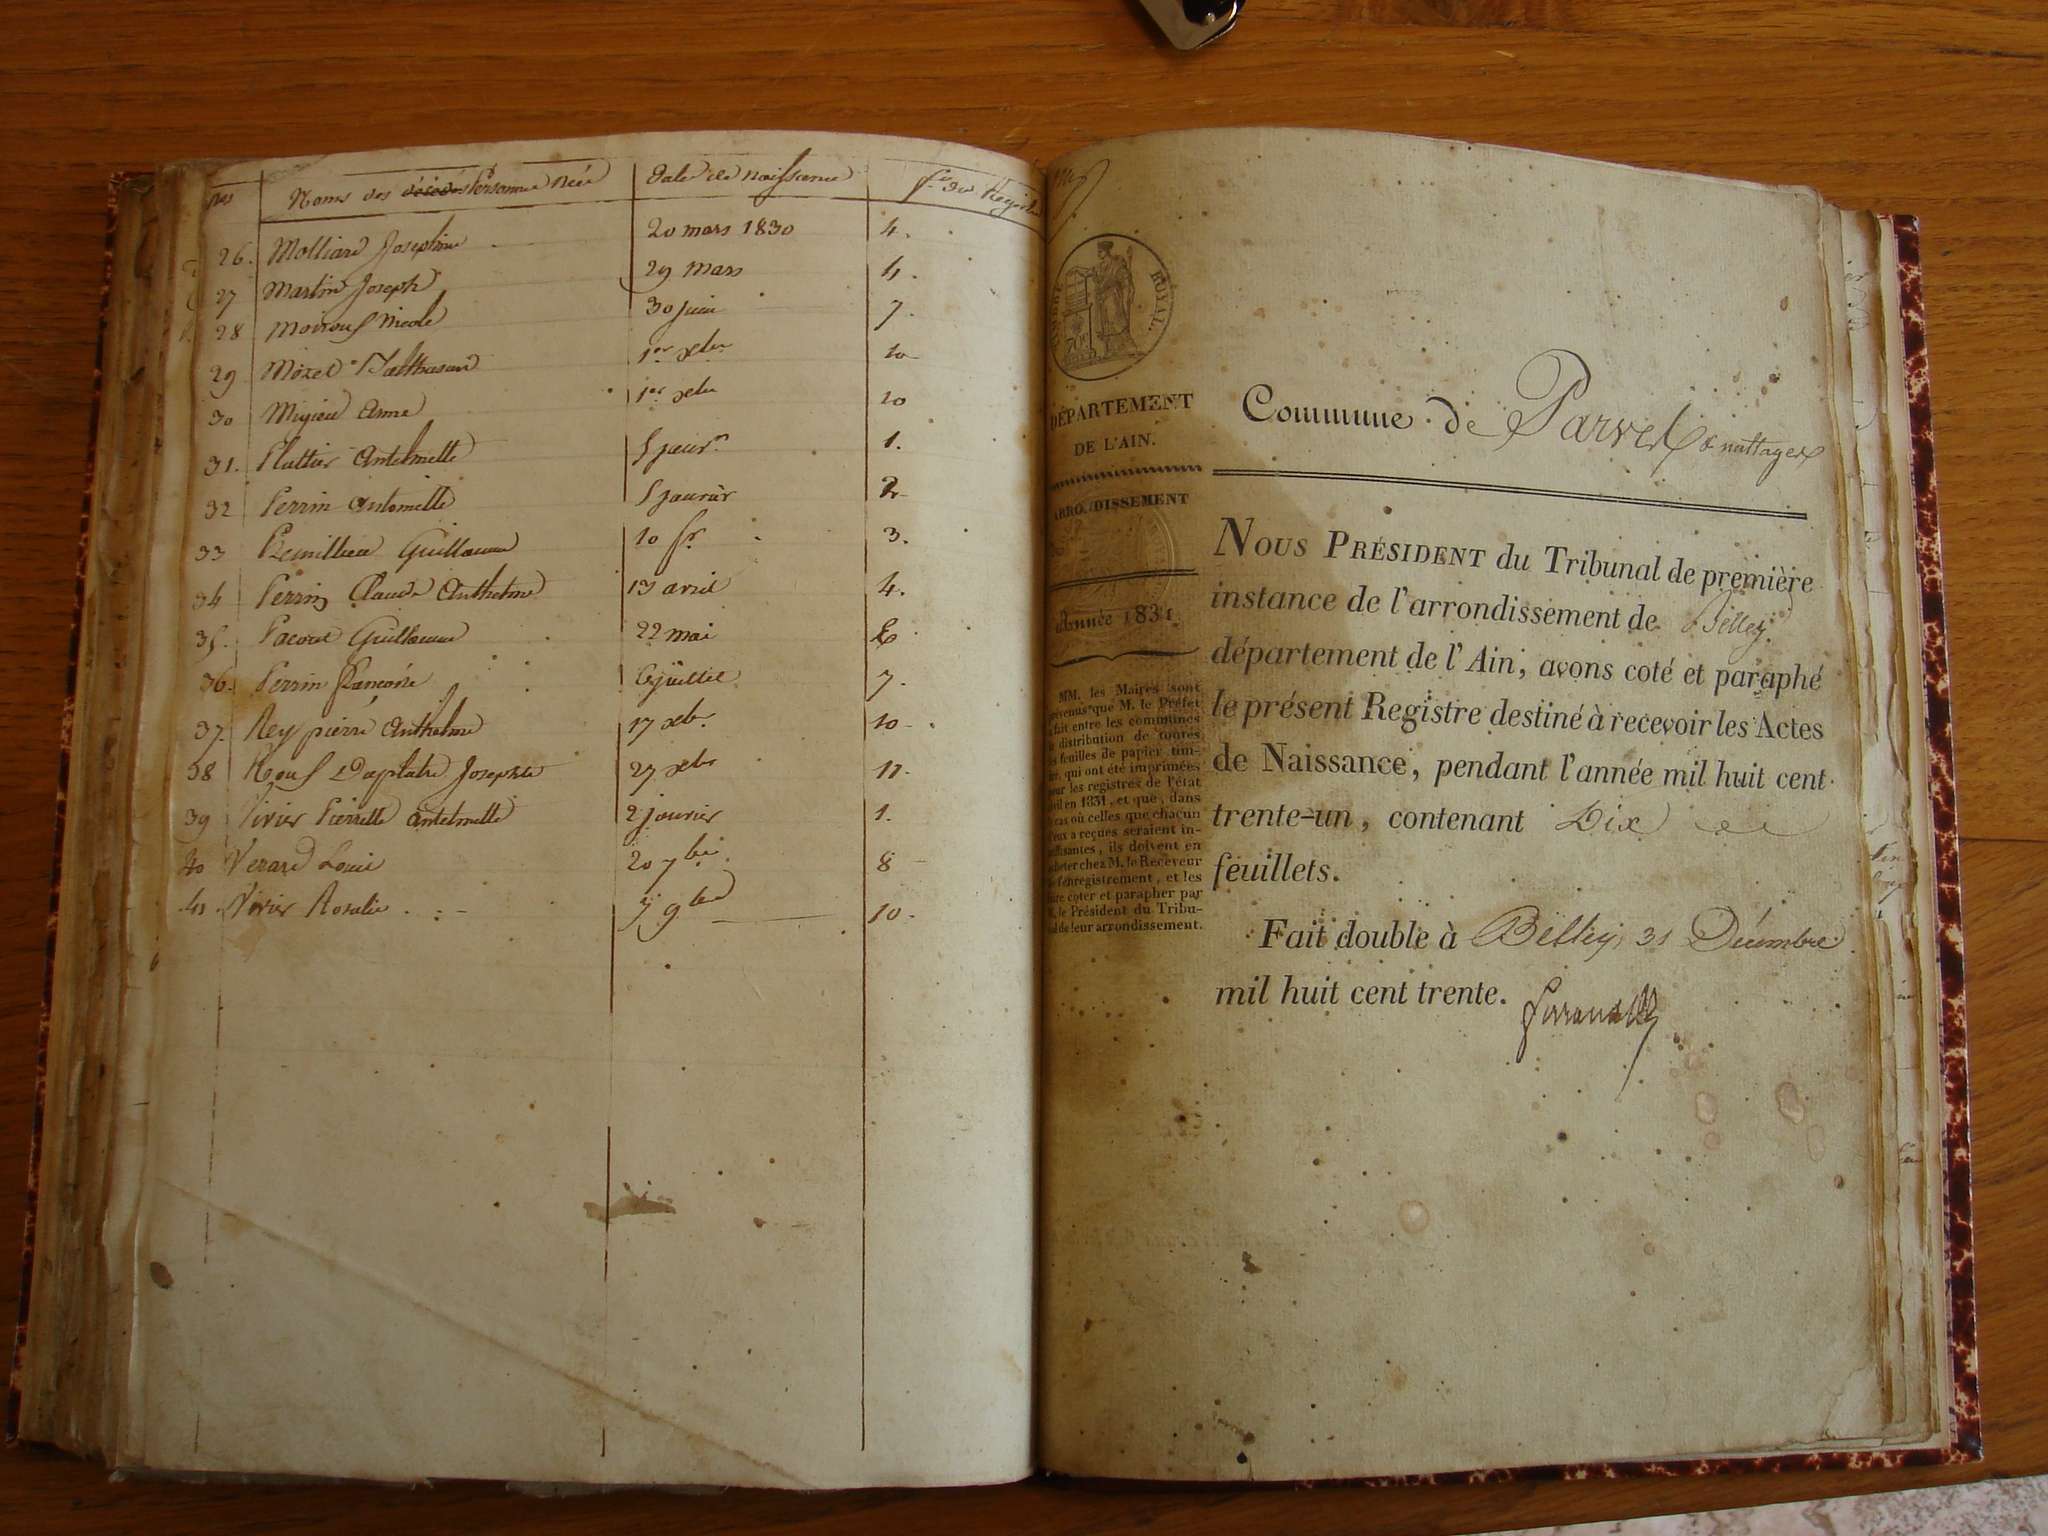 Nos Noms des décédés Personnes Née Date de naissance f.o du Registre
26. Molliard Josephine 20 mars 1830 4.
27 Martin Joseph 29 mars 4.
28 Nicole 30 juin 7.
29 Balthasard 1er xbre 10
30 Migieu Anne 1er xbre 10
31. Pluttier Antelmette 1.
32 Perrin Antoinette 5 janvier 2
33 Guillaume 10 3.
34 Perrin Claude Anthelme 13 avril 4.
35. Guillaume 22 mai 6
36. Perrin Françoise 6 juillet 7.
37. Rey pierre Anthelme 17 xbr. 10
38 Josephte 27 xbre 11.
39 Vivier Pierrette Antelmette 2 janvier 1.
40 Verard Louis 20 7bre. 8
41. Vivier Rosalie 9bre 10.
TIMBRE ROYAL.
70c
DÉPARTEMENT
DE L'AIN.
ARRONDISSEMENT
Année 1831.
MM. les Maires sont
prévenus que M. le Préfet
a fait entre les communes
la distribution de toutes
les feuilles de papier tim-
bré, qui ont été imprimées
pour les registres de l'état
civil en 1831, et que, dans
le cas où celles que chacun
d'eux a reçues seraient in-
suffisantes, ils doivent en
acheter chez M. le Receveur
de l'enregistrement, et les
faire coter et parapher par
M. le Président du Tribu-
nal de leur arrondissement.
Commune de Parves & nattages
NOUS PRÉSIDENT du Tribunal de première
instance de l'arrondissement de Belley
département de l'Ain, avons coté et paraphé
le présent Registre destiné à recevoir les Actes
de Naissance, pendant l'année mil huit cent
trente-un, contenant Dix
feuillets.
Fait double à Belley, 31 Décembre
mil huit cent trente.